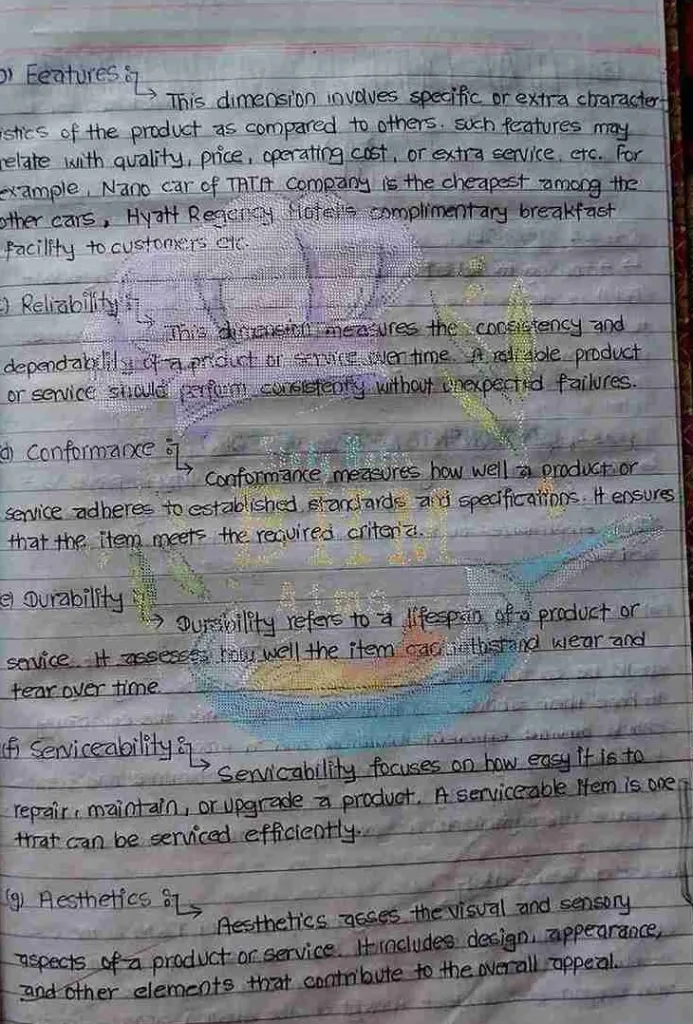 b) Features :-
This dimension involves specific or extra character-
istics of the product as compared to others. Such features may
relate with quality, price, operating cost, or extra service, etc. For
example, Nano car of TATA company is the cheapest among the
other cars, Hyatt Regency Hotel's complimentary breakfast
facility to customers etc.
c) Reliability :-
This dimension measures the consistency and
dependability of a product or service over time. A reliable product
or service should perform consistently without unexpected failures.
d) Conformance :-
Conformance measures how well a product or
service adheres to established standards and specifications. It ensures
that the item meets the required criteria.
BHM
e) Durability :-
Durability refers to a lifespan of a product or
service. It assesses how well the item can withstand wear and
tear over time.
(f) Serviceability :-
Servicability focuses on how easy it is to
repair, maintain, or upgrade a product. A serviceable item is one
that can be serviced efficiently.
(g) Aesthetics :-
Aesthetics asses the visual and sensory
aspects of a product or service. It includes design, appearance,
and other elements that contribute to the overall appeal.